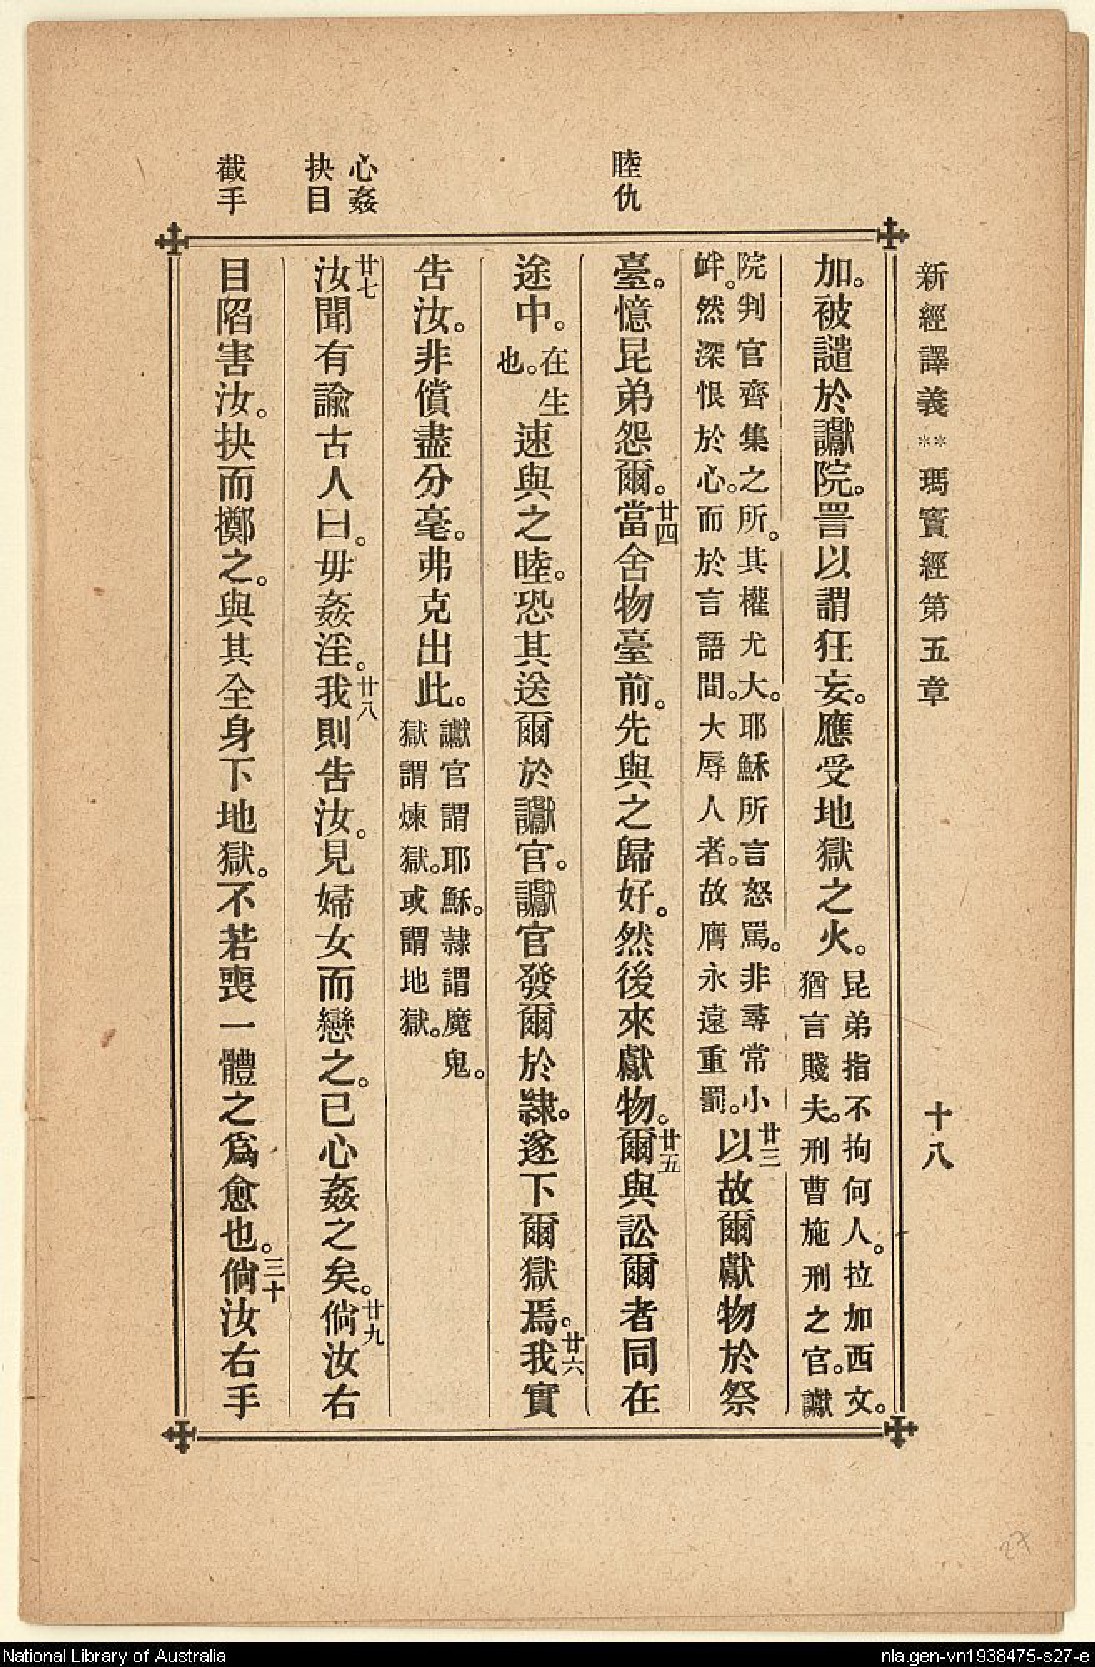 新經譯義**瑪竇經第五章 十八
睦仇
心姦
抉目
截手
加。被讉於讞院。詈以謂狂妄。應受地獄之火。昆弟指不拘何人。拉加西文。
猶言賤夫。刑曹施刑之官。讞
院判官齊集之所。其權尤大。耶穌所言怒罵。非尋常小
衅。然深恨於心。而於言語間。大辱人者。故膺永遠重罰。
廿三以故爾獻物於祭
臺。憶昆弟怨爾。廿四當舍物臺前。先與之歸好。然後來獻物。廿五爾與訟爾者同在
途中。在生
也。
速與之睦。恐其送爾於讞官。讞官發爾於隸。遂下爾獄焉。廿六我實
告汝。非償盡分毫。弗克出此。讞官謂耶穌。隸謂魔鬼。
獄謂煉獄。或謂地獄。
廿七汝聞有諭古人曰。毋姦淫。廿八我則告汝。見婦女而戀之。已心姦之矣。廿九倘汝右
目陷害汝。抉而擲之。與其全身下地獄。不若喪一體之爲愈也。三十倘汝右手
27
National Library of Australia
nla.gen-vn1938475-s27-e